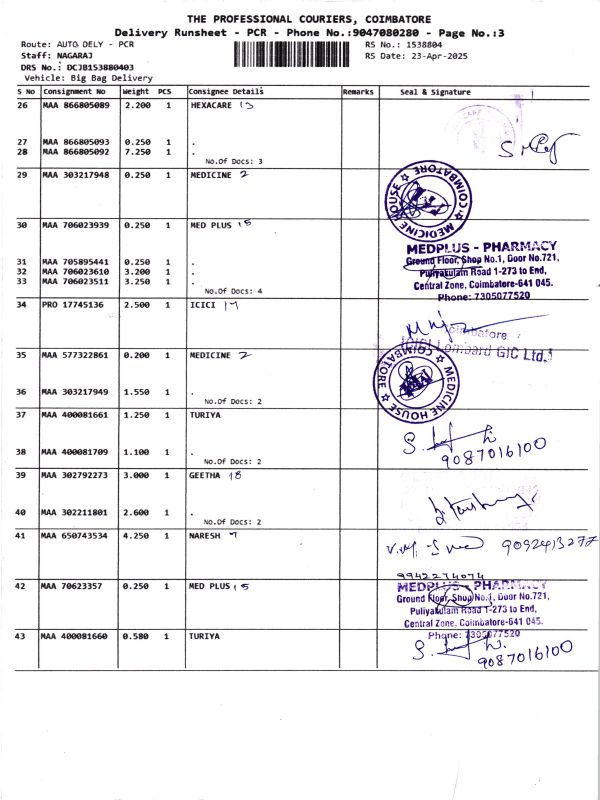 THE PROFESSIONAL COURIERS, COIMBATORE
Delivery Runsheet - PCR - Phone No.:9047080280 - Page No.:3
Route: AUTO DELY - PCR RS No.: 1538804
Staff: NAGARAJ RS Date: 23-Apr-2025
DRS No.: DCJB153880403
Vehicle: Big Bag Delivery
S No Consignment No Weight PCS Consignee Details Remarks Seal & Signature
26 MAA 866805089 2.200 1 HEXACARE 13
27 MAA 866805093 0.250 1 .
28 MAA 866805092 7.250 1 .
No.Of Docs: 3
29 MAA 303217948 0.250 1 MEDICINE 2
MEDICINE HOUSE COIMBATORE
30 MAA 706023939 0.250 1 MED PLUS 15
MEDPLUS - PHARMACY
Ground Floor, Shop No.1, Door No.721,
31 MAA 705895441 0.250 1 .
32 MAA 706023610 3.200 1 .
Puliyakulam Road 1-273 to End,
33 MAA 706023511 3.250 1 .
Central Zone, Coimbatore-641 045.
No.Of Docs: 4
Phone: 7305077520
34 PRO 17745136 2.500 1 ICICI 17
Coimbatore
ICICI Lombard GIC Ltd.
35 MAA 577322861 0.200 1 MEDICINE 2
MEDICINE HOUSE COIMBATORE
36 MAA 303217949 1.550 1 .
No.Of Docs: 2
37 MAA 400081661 1.250 1 TURIYA
38 MAA 400081709 1.100 1 .
9087016100
No.Of Docs: 2
39 MAA 302792273 3.000 1 GEETHA 18
40 MAA 302211801 2.600 1 .
No.Of Docs: 2
41 MAA 650743534 4.250 1 NARESH 7
9092413277
9942274074
42 MAA 70623357 0.250 1 MED PLUS 15
MEDPLUS - PHARMACY
Ground Floor, Shop No.1, Door No.721,
Puliyakulam Road 1-273 to End,
Central Zone, Coimbatore-641 045.
Phone: 7305077520
43 MAA 400081660 0.580 1 TURIYA
9087016100